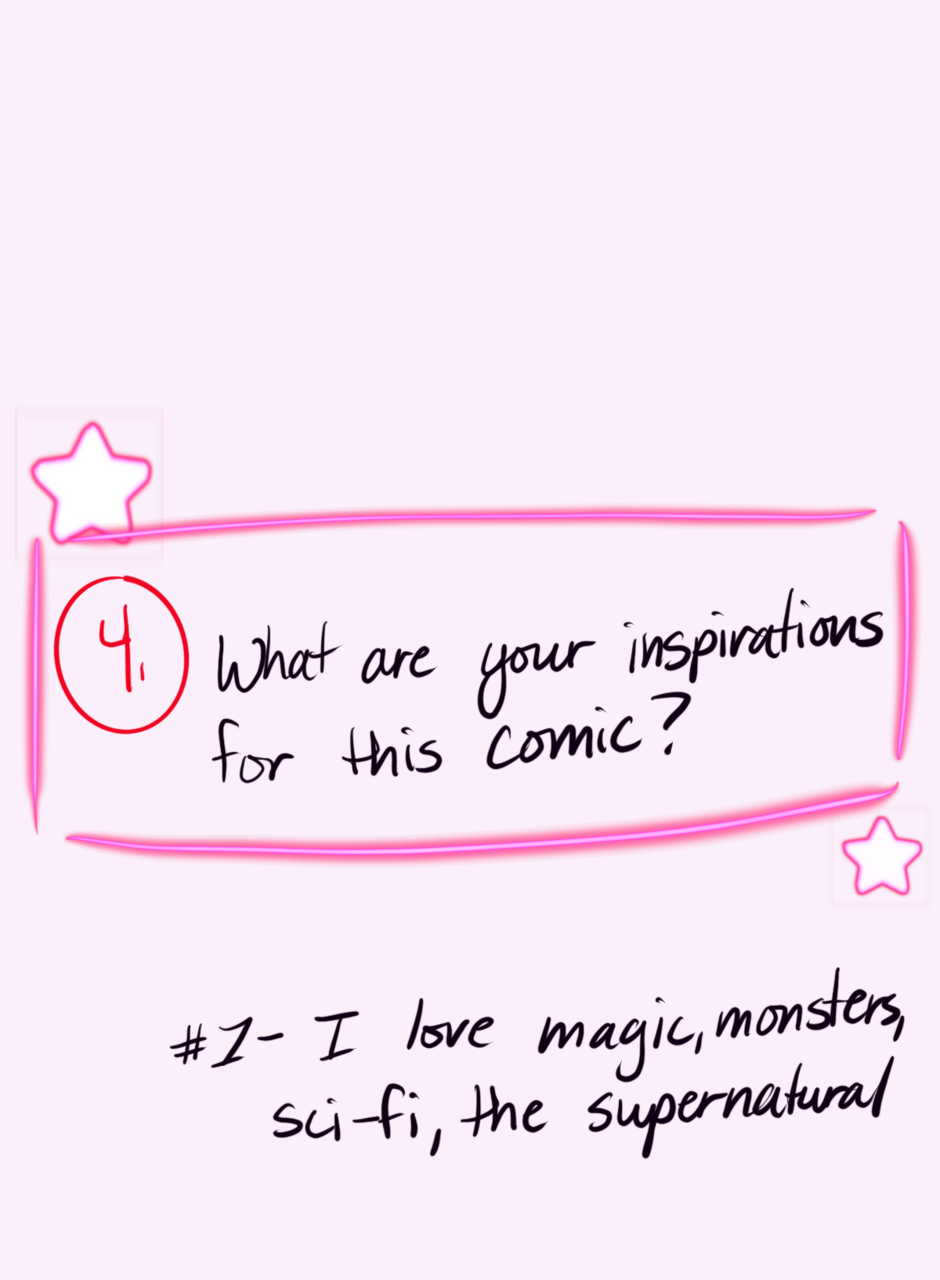 4. What are your inspirations
for this comic?
#1- I love magic, monsters,
sci-fi, the supernatural